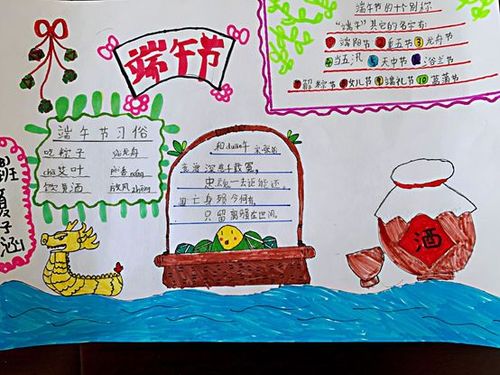 端午节的十个别称
"端午"其它的名字有:
①端阳节 ②重五节 ③龙舟节
④当五汛 ⑤天中节 ⑥浴兰节
⑦解粽节 ⑧女儿节 ⑨端礼节 ⑩菖蒲节
端午节
端午节习俗
吃粽子 划龙舟
cha艾叶 佩香náng
饮黄酒 放风zhēng
和duān午
竞渡深悲千载冤,
忠魂一去讵能还。
国亡身殒今何有,
只留离骚在世间。
酒
班
涵